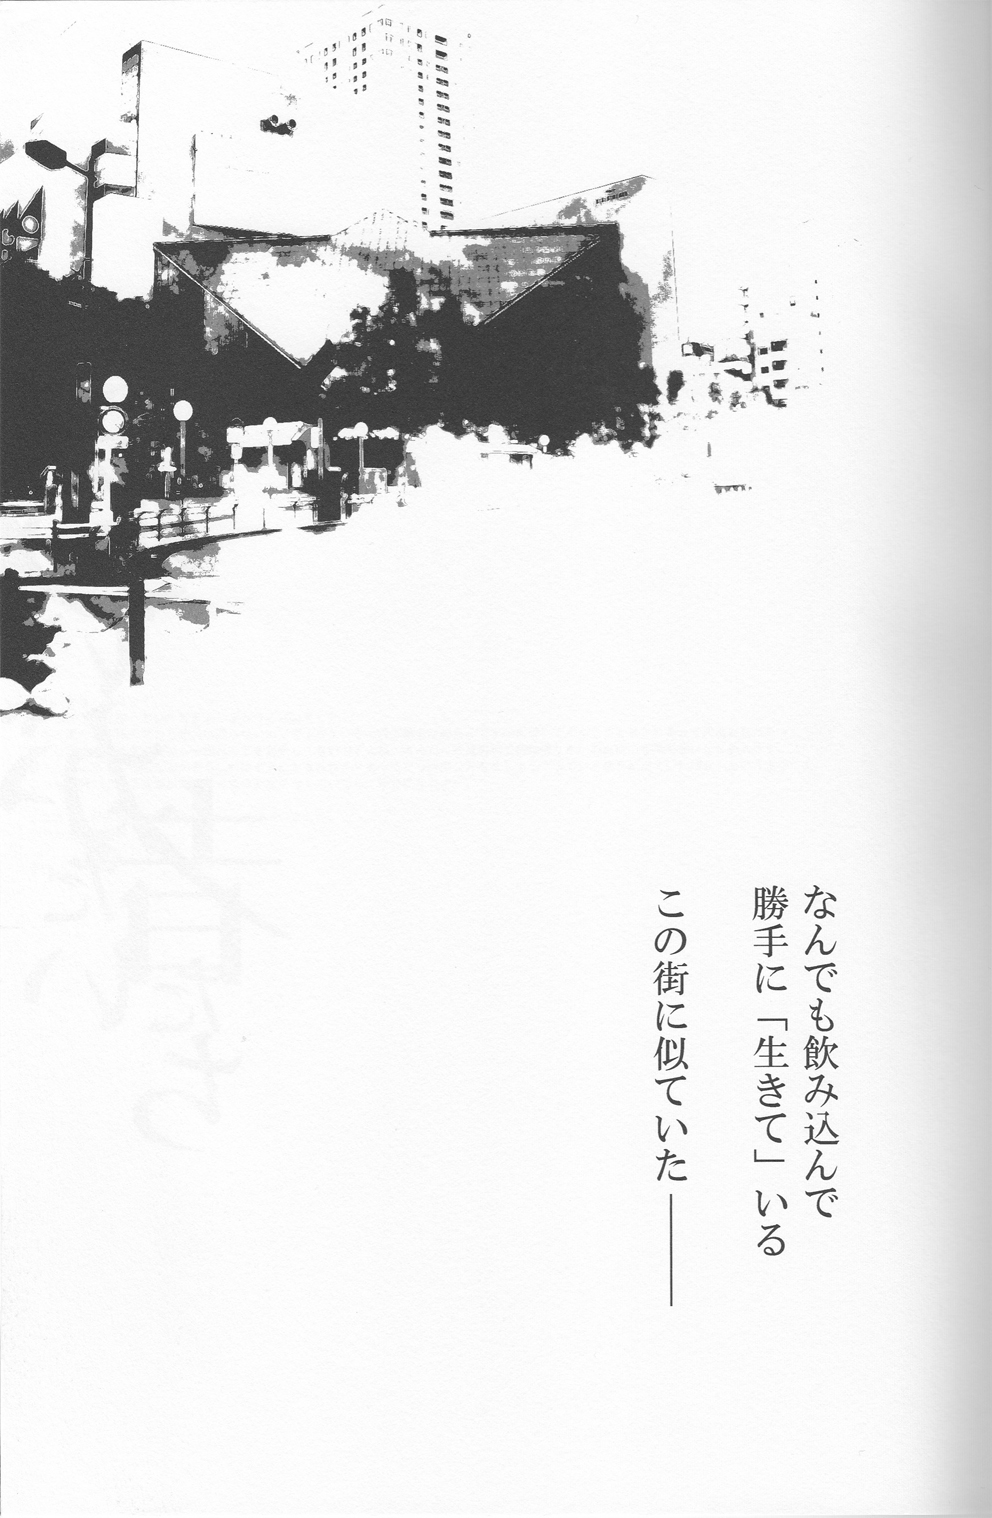 なんでも飲み込んで
勝手に「生きて」いる
この街に似ていた――